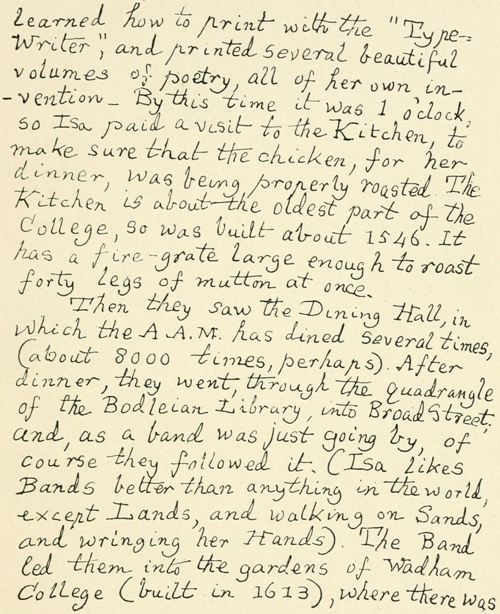 learned how to print with the "Type-
Writer," and printed several beautiful
volumes of poetry, all of her own in-
-vention - By this time it was 1 o'clock,
so Isa paid a visit to the Kitchen, to
make sure that the chicken, for her
dinner, was being properly roasted. The
Kitchen is about the oldest part of the
College, so was built about 1546. It
has a fire-grate large enough to roast
forty legs of mutton at once.
Then they saw the Dining Hall, in
which the A.A.M. has dined several times,
(about 8000 times, perhaps). After
dinner, they went, through the quadrangle
of the Bodleian Library, into Broad Street,
and, as a band was just going by, of
course they followed it. (Isa likes
Bands better than anything in the world,
except Lands, and walking on Sands,
and wringing her Hands). The Band
led them into the gardens of Wadham
College (built in 1613), where there was